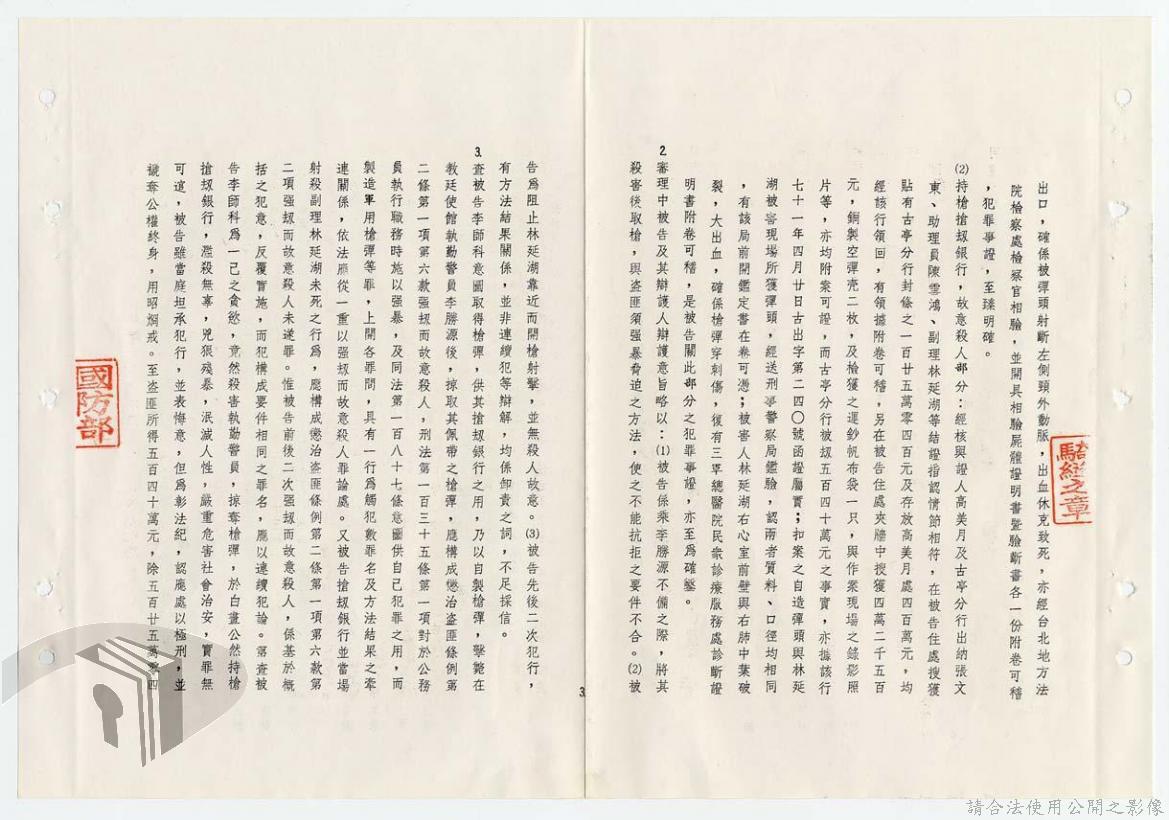 出口，確係被彈頭射斷左側頸外動脈，出血休克致死，亦經台北地方法
院檢察處檢察官相驗，並開具相驗屍體證明書暨驗斷書各一份附卷可稽
，犯罪事證，至臻明確。
⑵持槍搶刼銀行，故意殺人部分：經核與證人高美月及古亭分行出納張文
東、助理員陳雲鴻、副理林延湖等結證指認情節相符，在被告住處搜獲
貼有古亭分行封條之一百廿五萬零四百元及存放高美月處四百萬元，均
經該行領回，有領據附卷可稽，另在被告住處夾牆中搜獲四萬二千五百
元，銅製空彈壳二枚，及檢獲之運鈔帆布袋一只，與作案現場之錄影照
片等，亦均附案可證，而古亭分行被刼五百四十萬元之事實，亦據該行
七十一年四月廿日古出字第二四〇號函證屬實；扣案之自造彈頭與林延
湖被害現場所獲彈頭，經送刑事警察局鑑驗，認兩者質料、口徑均相同
，有該局前開鑑定書在卷可憑；被害人林延湖右心室前壁與右肺中葉破
裂，大出血，確係槍彈穿刺傷，復有三軍總醫院民衆診療服務處診斷證
明書附卷可稽，是被告關此部分之犯罪事證，亦至爲確鑿。
2.審理中被告及其辯護人辯護意旨略以：⑴被告係乘李勝源不備之際，將其
殺害後取槍，與盜匪須强暴脅迫之方法，使之不能抗拒之要件不合。⑵被
告爲阻止林延湖靠近而開槍射擊，並無殺人故意。⑶被告先後二次犯行，
有方法結果關係，並非連續犯等辯解，均係卸責之詞，不足採信。
3.查被告李師科意圖取得槍彈，供其搶刼銀行之用，乃以自製槍彈，擊斃在
教廷使館執勤警員李勝源後，掠取其佩帶之槍彈，應構成懲治盜匪條例第
二條第一項第六款强刼而故意殺人，刑法第一百三十五條第一項對於公務
員執行職務時施以强暴，及同法第一百八十七條意圖供自己犯罪之用，而
製造軍用槍彈等罪，上開各罪間，具有一行爲觸犯數罪名及方法結果之牽
連關係，依法應從一重以强刼而故意殺人罪論處。又被告搶刼銀行並當場
射殺副理林延湖未死之行爲，應構成懲治盜匪條例第二條第一項第六款第
二項强刼而故意殺人未遂罪。惟被告前後二次强刼而故意殺人，係基於概
括之犯意，反覆實施，而犯構成要件相同之罪名，應以連續犯論。第查被
告李師科爲一己之貪慾，竟然殺害執勤警員，掠奪槍彈，於白晝公然持槍
搶刼銀行，濫殺無辜，兇狠殘暴，泯滅人性，嚴重危害社會治安，實罪無
可逭，被告雖當庭坦承犯行，並表悔意，但爲彰法紀，認應處以極刑，並
褫奪公權終身，用昭烱戒。至盜匪所得五百四十萬元，除五百廿五萬零四
3
國防部
騎縫之章
請合法使用公開之影像